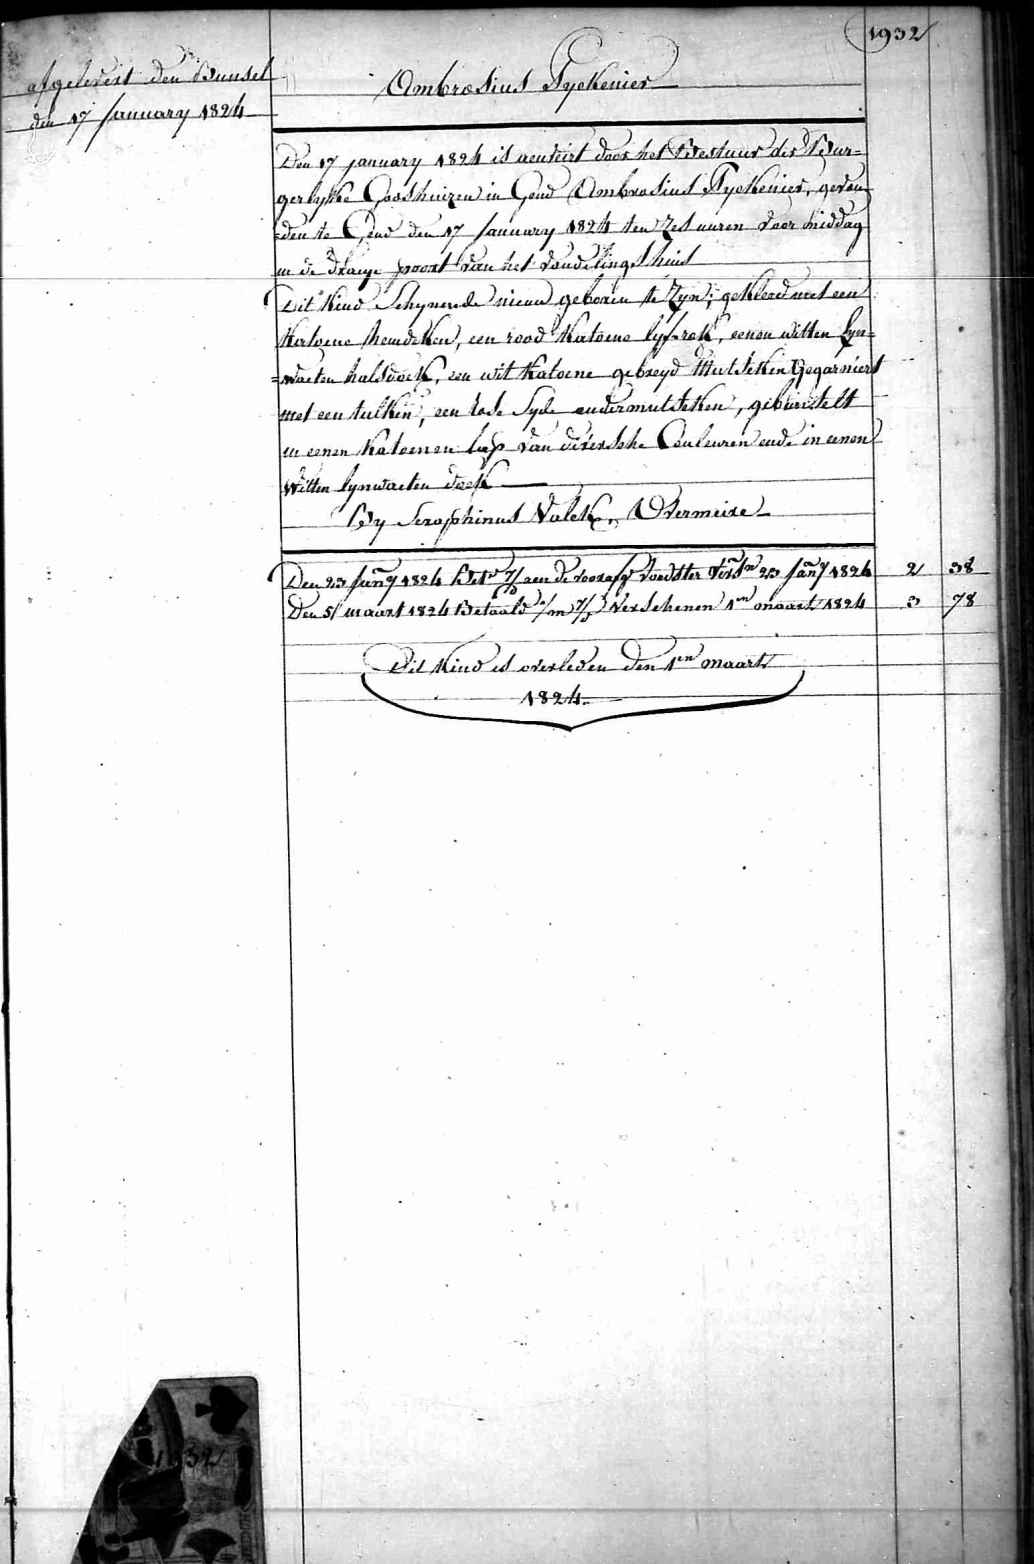 1932
afgelevert den Bunsel
den 17 January 1824
Ambrosius Tyckenier
Den 17 january 1824 is aenveirt door het Bestuur der Bur=
gerlyke Godshuizen in Gend Ambrosius Tyckenier, gevon
=den te Gend den 17 January 1824 ten zes uuren voor middag
in de draeye poort van het vondelingshuis
Dit kind Schynende nieuw geboren te zyn, gekleed met een
Katoene hemdeken, een rood Katoene lyf-rok, eenen witten lyn=
=waeten halsdoek, een wit Katoene gebreyd Mutseken gegarniert
met een tulken, een rose Syde ondermutseken, gebusselt
in eenen Katoenen lap van diversche Couleuren ende in eenen
Witten lynwaeten doek
By Seraphinus Valck, Overmeire
Den 23 Jany 1824 Bete aen de voorafge voedster Versn 23 Jany 1824 2 38
Den 5 maart 1824 Betaald Verschenen 1en maart 1824 3 78
Dit Kind is overleden den 1en maart
1824.
1932